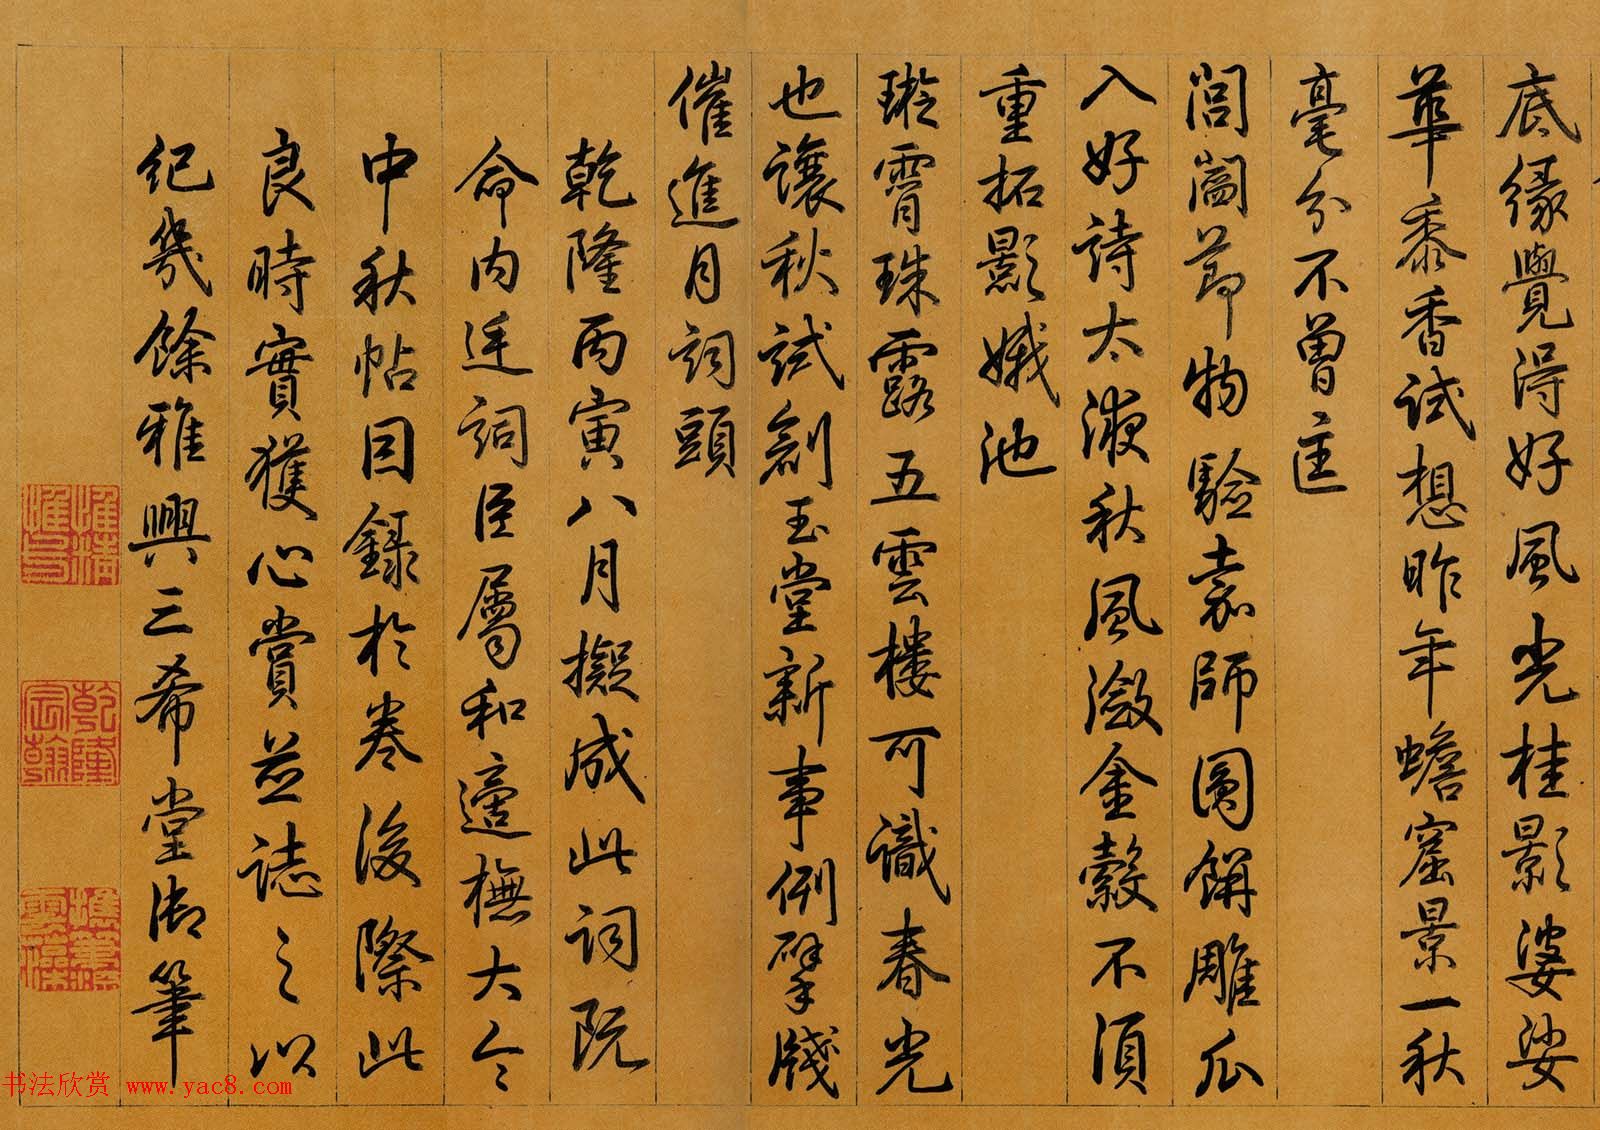 底緣覺得好風光桂影婆娑
華黍香試想昨年蟾窟景一秋
毫分不曾㢺
閶闔節物驗嘉師圓餅雕瓜
入好詩太液秋風瀲金縠不須
重拓影娥池
璇霄珠露五雲樓可識春光
也讓秋試創玉堂新事例擘牋
催進月詞頭
乾隆丙寅八月擬成此詞既
命內廷詞臣屬和適橅大令
中秋帖因錄於卷後際此
良時實獲心賞並誌之以
紀幾餘雅興三希堂御筆
惟精惟一
乾隆宸翰
書法欣賞 www.yac8.com